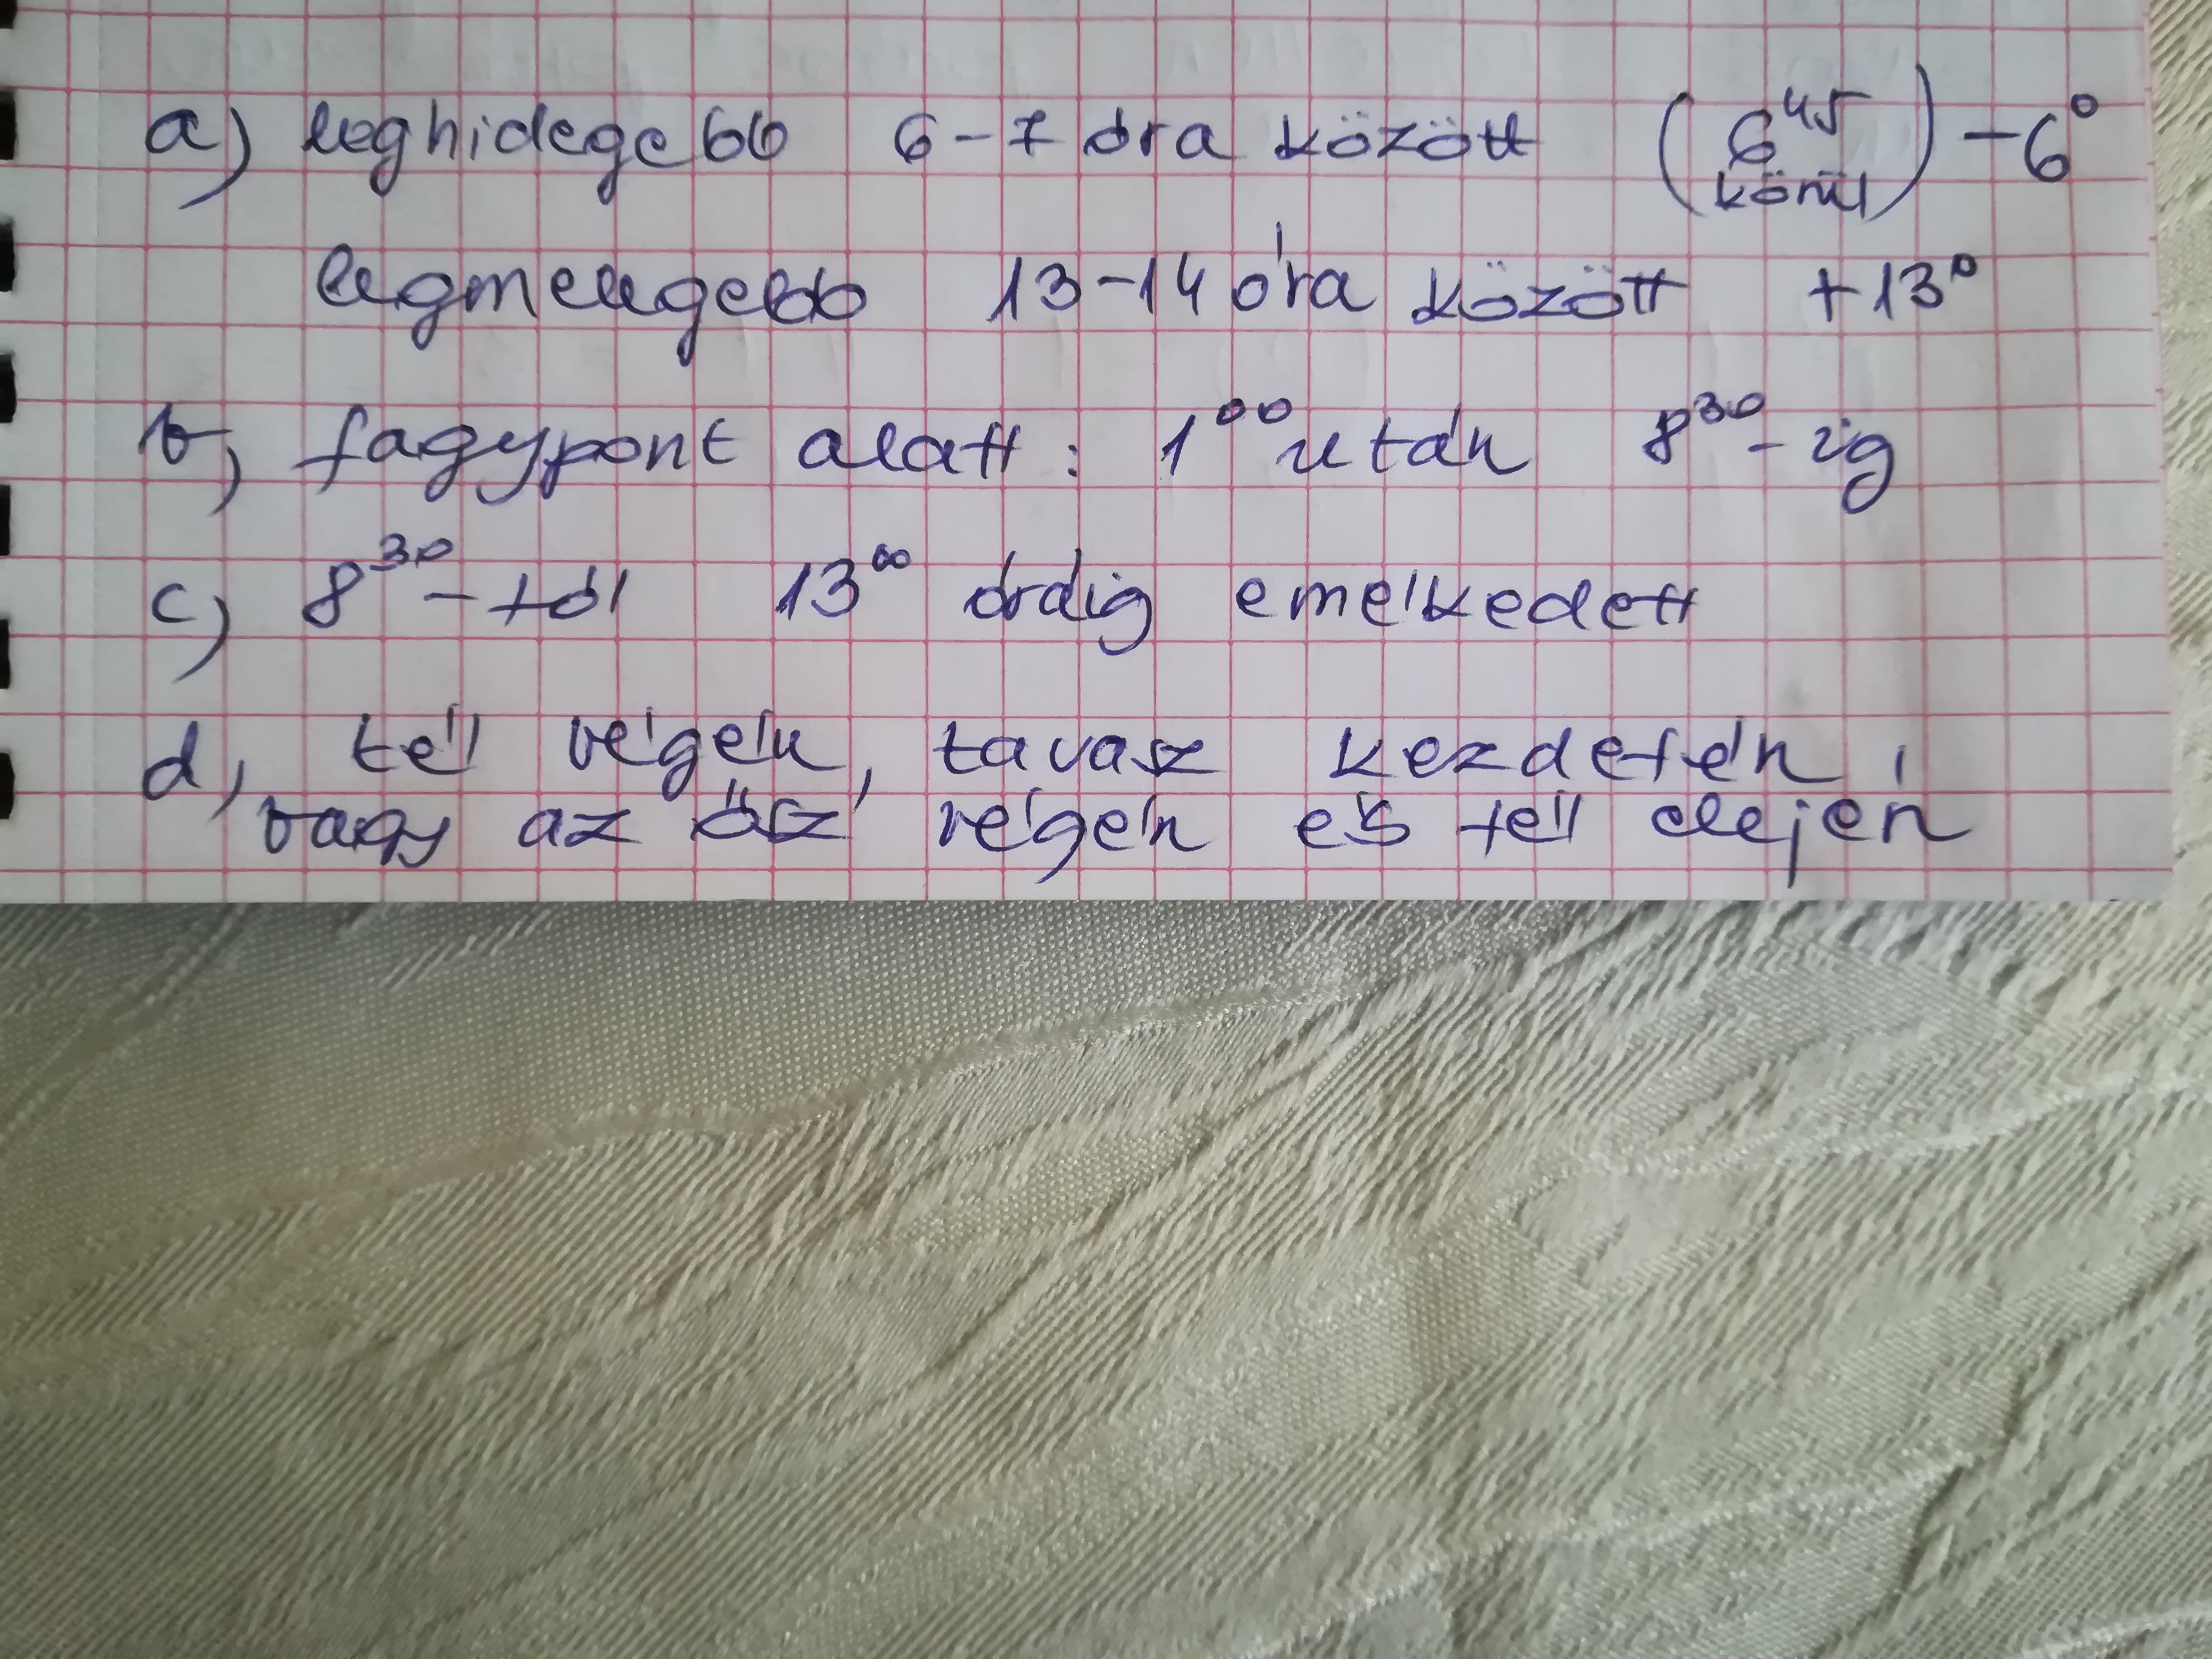 a) leghidegebb 6-7 óra között (6⁴⁵ körül) -6°
legmelegebb 13-14 óra között +13°
b, fagypont alatt: 1⁰⁰ után 8³⁰-ig
c) 8³⁰-tól 13⁰⁰ óráig emelkedett
d, tél végén, tavasz kezdetén,
vagy az ősz végén és tél elején